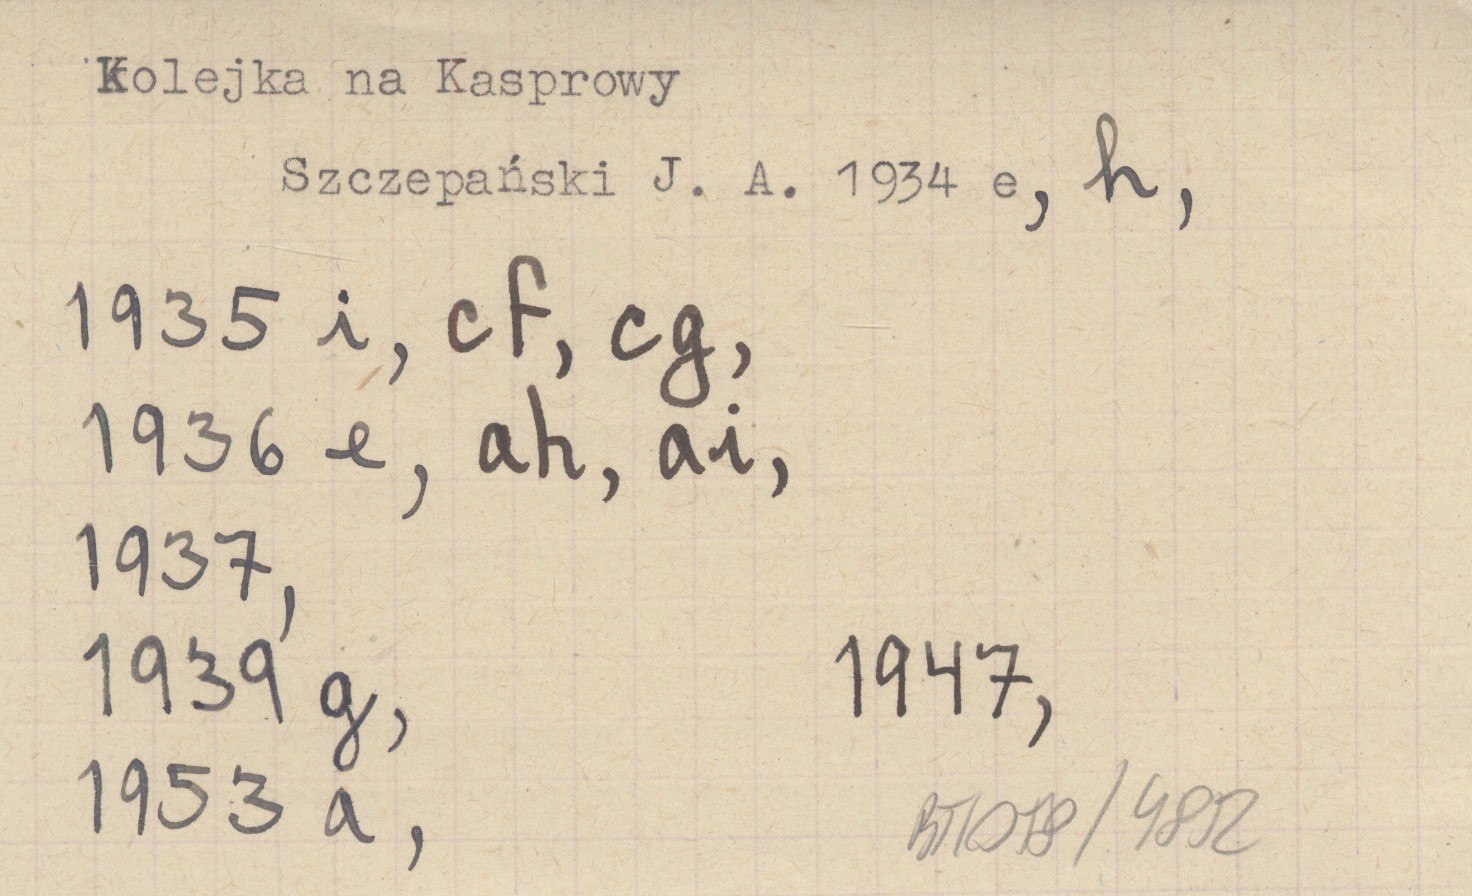 Kolejka na Kasprowy
Szczepański J. A. 1934 e, h,
1935 i, cf, cg,
1936 e, ah, ai,
1937,
1939 g,
1947,
1953 a,